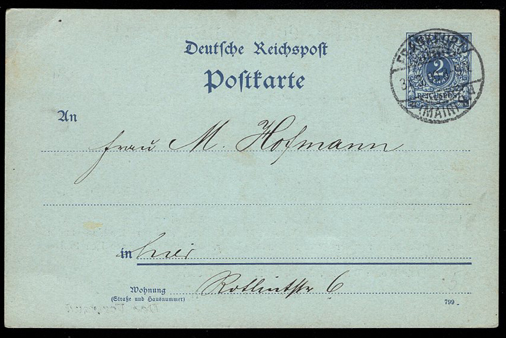 Deutsche Reichspost
Postkarte
FRANKFURT
2
(MAIN)
An
Frau M. Hofmann
in hier
Wohnung
(Straße und Hausnummer)
Rotlintstr 6
799